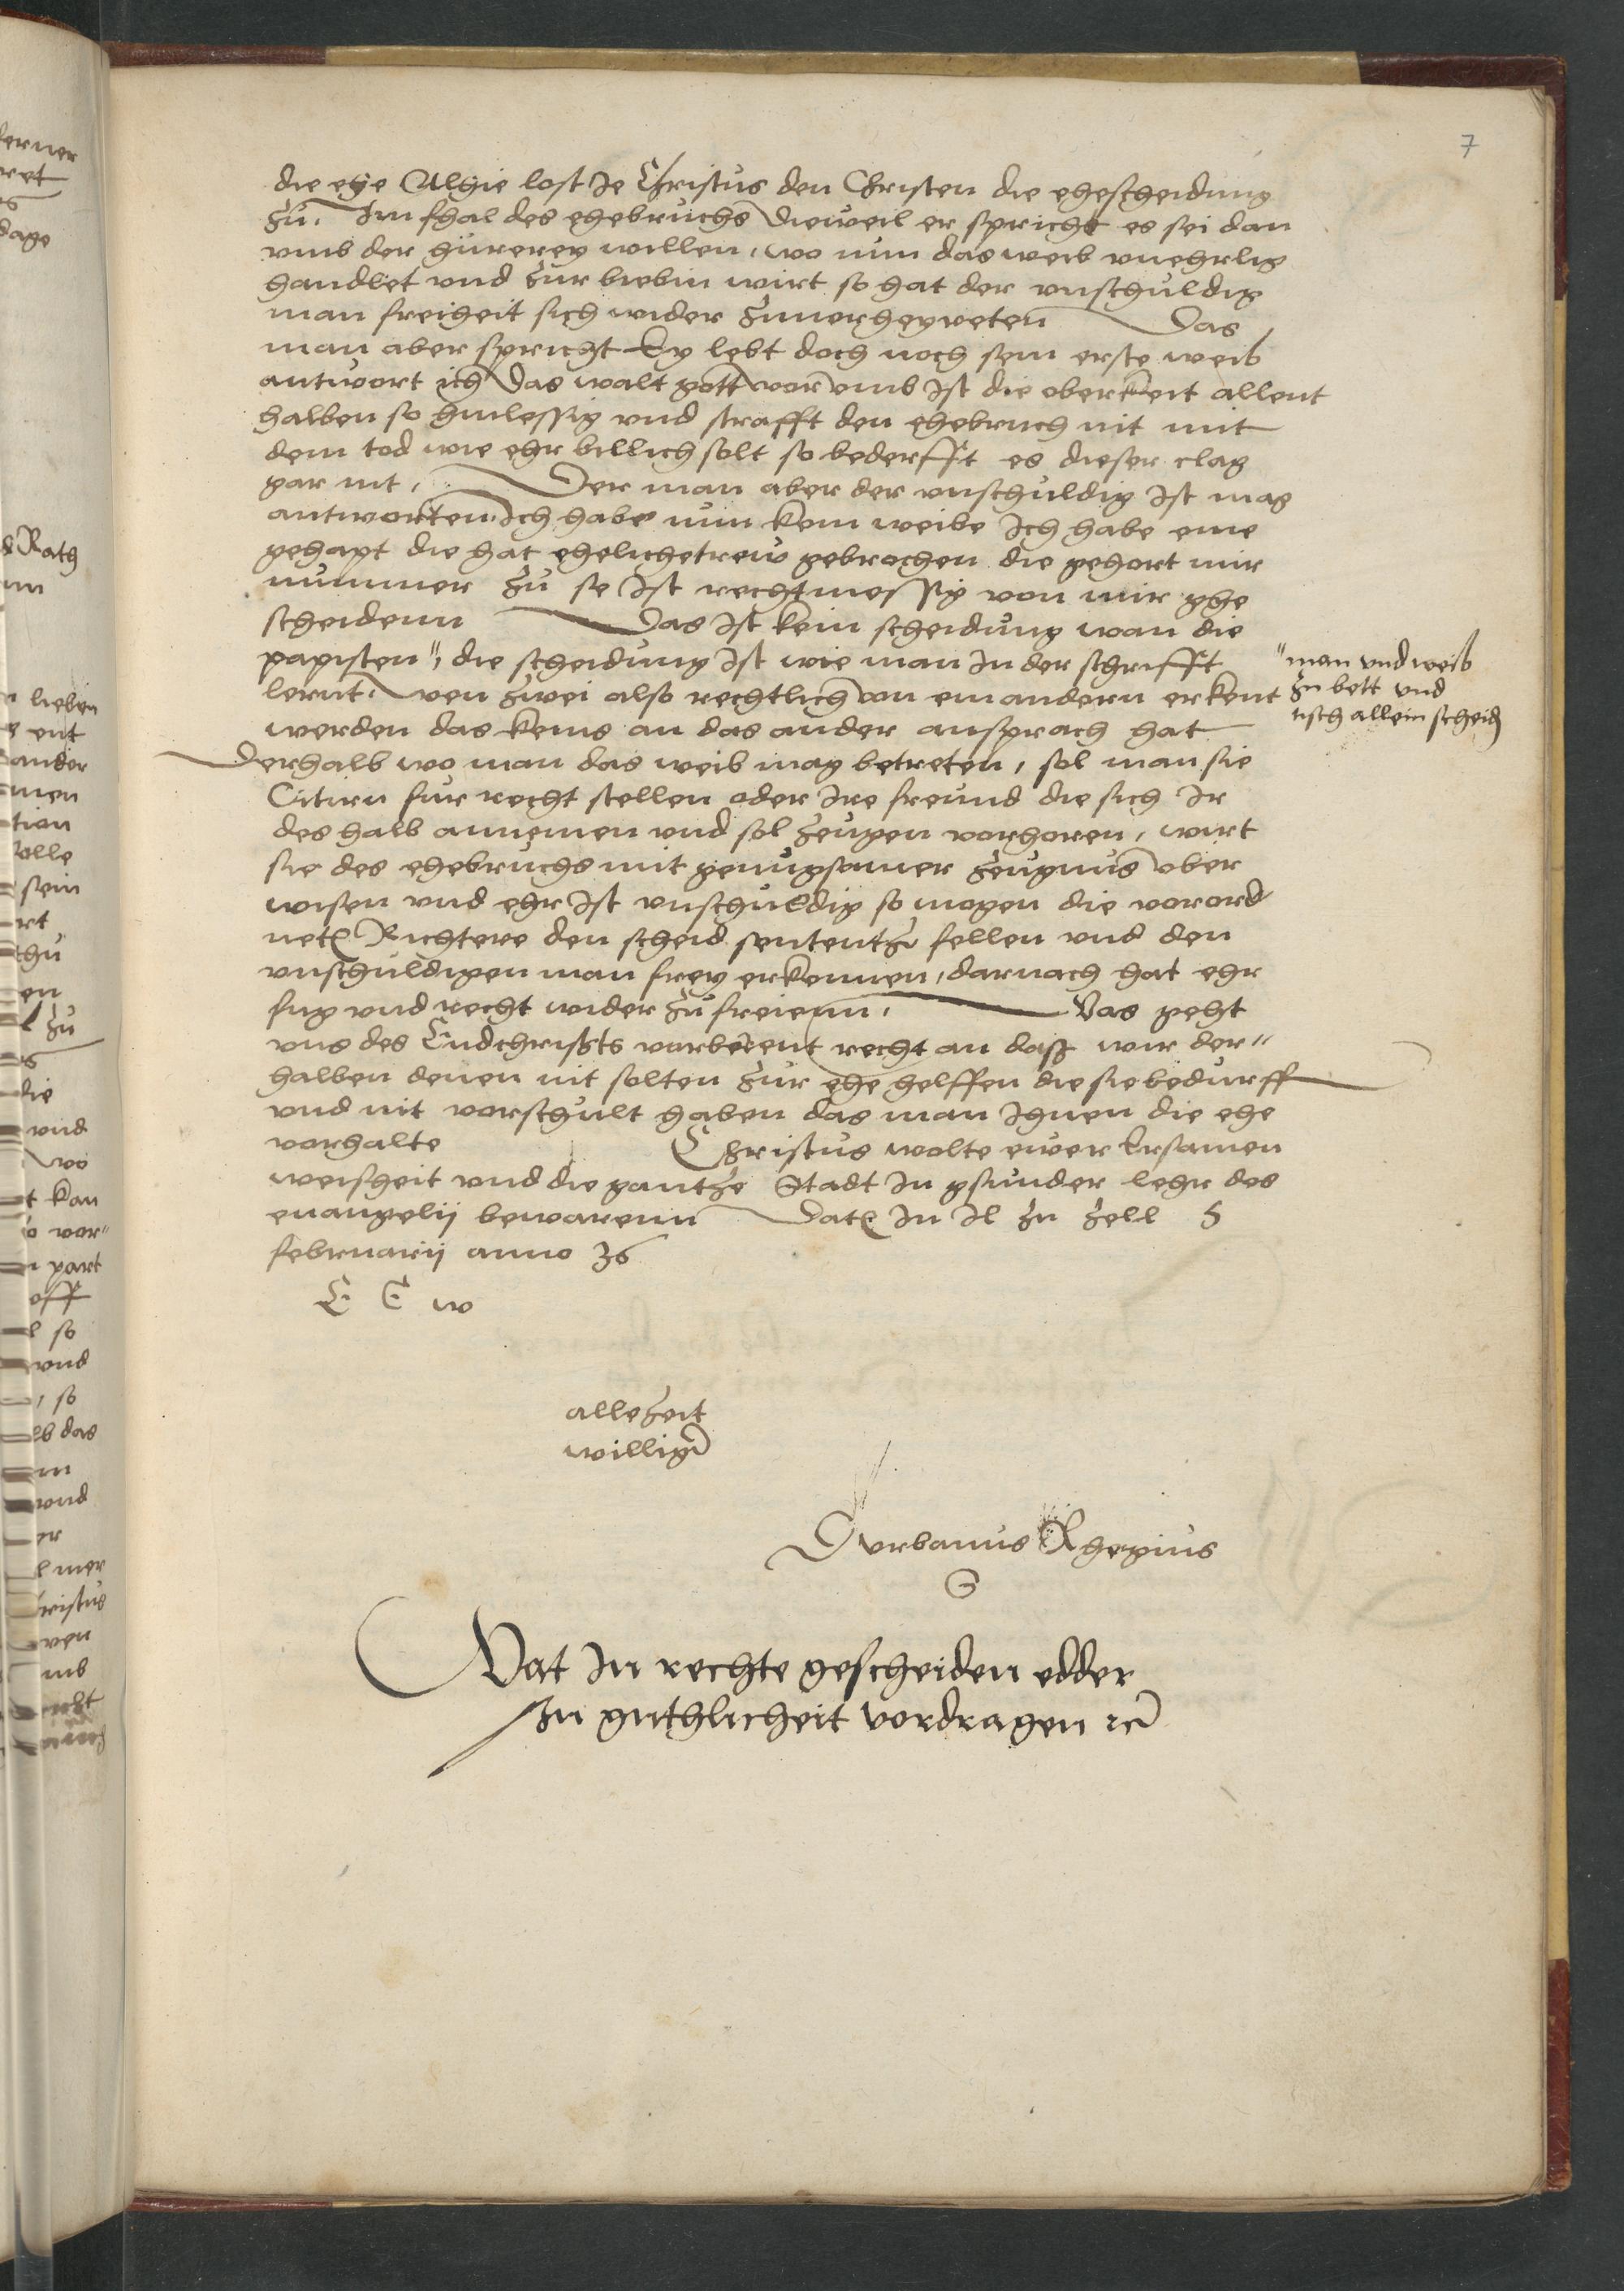 7
die ehe Alhie lost Je Christus den Christen die ehescheidung
zu. Im fhal des ehebruchs Dieweil er spricht es sei dan
vmb der hurerey willen, wo nun das weib vnehrlig
handlet vnd zur biebin wirt so hat der vnschuldig
man freiheit sich wider zuuorheyreten Das
man aber spricht Ey lebt doch noch sein erste weib
antwort ich Das walt gott worvmb Ist die oberkeit allent
halben so hinlessig vnd strafft den ehebruch nit mit
dem tod wie ehr billich solt so bederfft es dieser clag
gar nit, Der man aber der vnschuldig Ist mag
antworten. Ich habe nun kein weibe Ich habe eine
gehapt die hat ehelichetrew gebrochen die gehort mir
nummer zu se Ist rechtmessig von mir ghe
scheidenn Das Ist kein scheidung wan die
papisten ", die scheidung Ist wie man In der schrifft
lernt. wen zwei also rechtlich von einandern erkent
werden das keins an das ander ansprach hat
" man vnd weib
zu bett vnd
tisch allein scheid
Derhalb wo man das weib mag betreten, sol man sie
Citirn fur recht stellen oder Ire freund die sich Ir
des halb annemen vnd sol zeugen vorhoren, wirt
sie des ehebruchs mit genugsamer zeugnus vber
wisen vnd ehr Ist vnschuldig so mogen die vorord
net Richtere den scheid sententz fellen vnd den
vnschuldigen man frey erkennen, darnach hat ehr
fug vnd recht wider zu freienn. Vas geht
vns des Endchrists vorkerent recht an dass wir der"
halben denen nit solten zur ehe helffen die sie bedurff
vnd nit vorschult haben das man Ihnen die ehe
vorhalte Christus wolte ewer Ersamen
weisheit vnd die gantze Stadt In gsunder lehr des
euangelij bewarenn Dat In Il zu Zell 5
februarij anno 36
E E w
allezeit
williger
D vrbanus Rhegius
Vat In rechte gescheiden edder
In guthlicheit vordragen rc